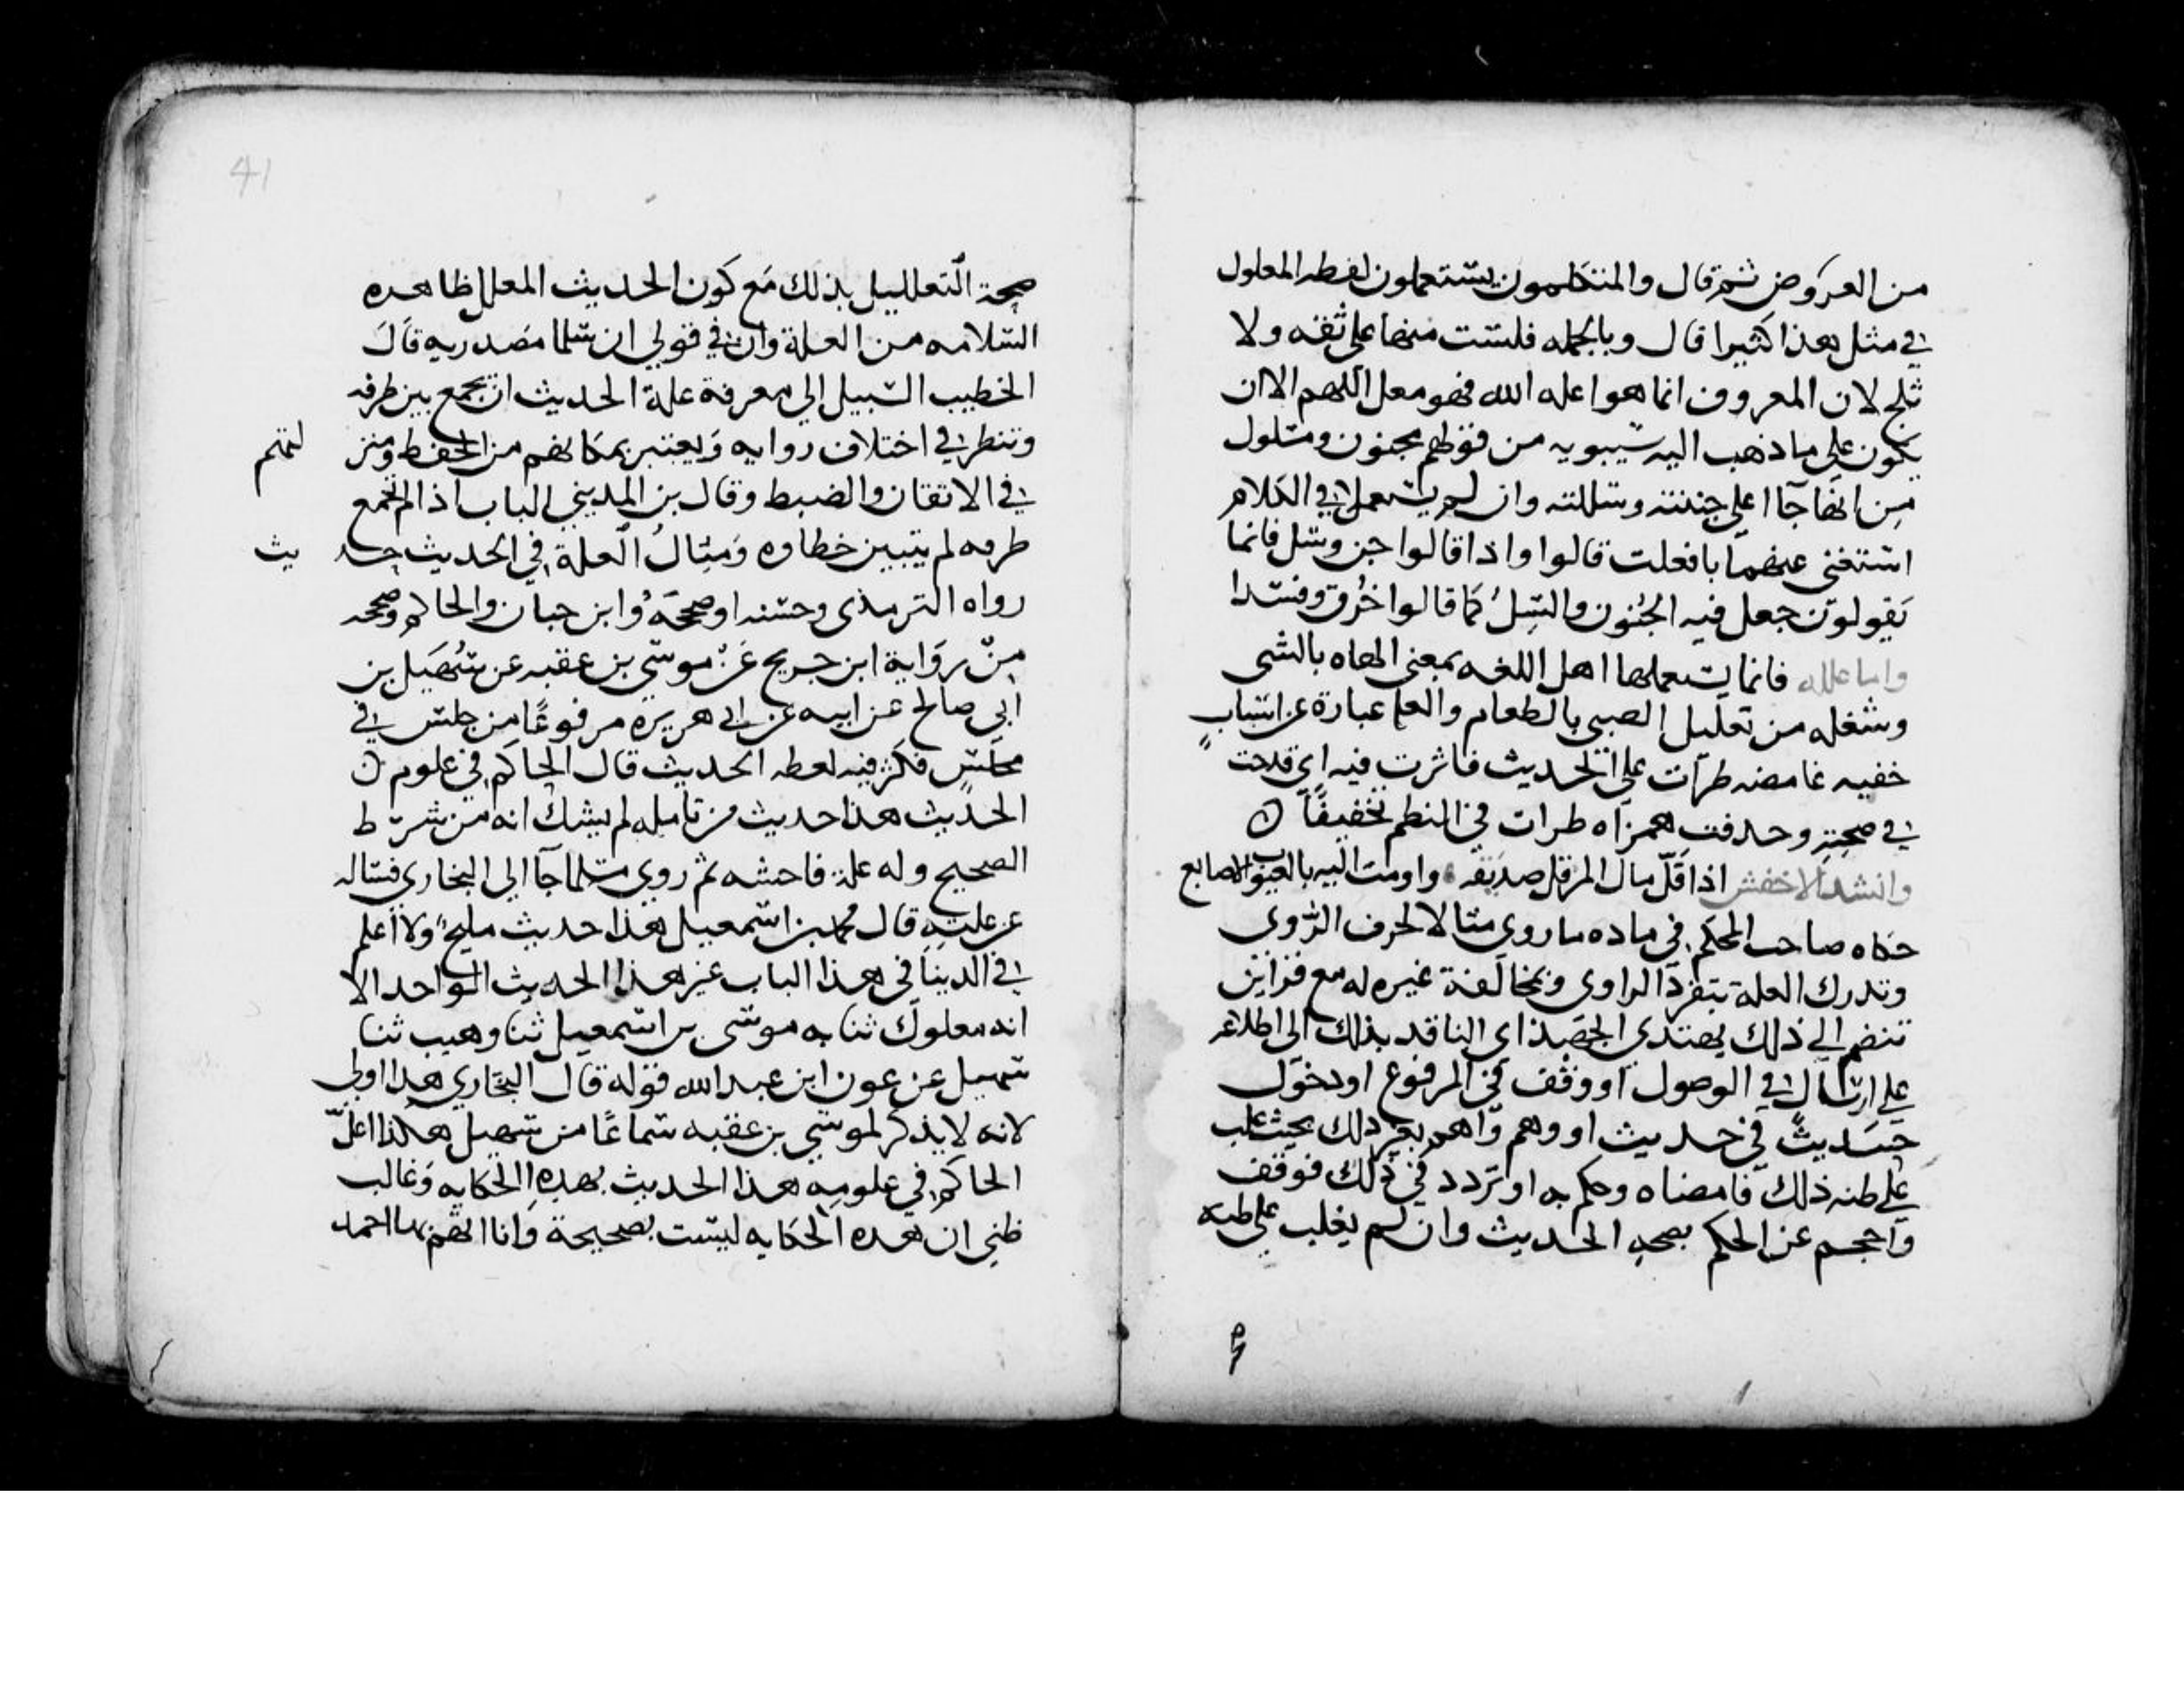 من العروض ثم قال والمتكلمون يستعملون لفظه المعلول
في مثل هذا كثيرا قال وبالجمله فلست منها على ثقه ولا
ثلج لان المعروف انما هو اعله الله فهو معل اللهم الا ان
يكون على ما ذهب اليه سيبويه من قولهم مجنون ومسلول
من انها جاا على جننته وسللته وان لم يستعملا في الكلام
استغنى عنهما بافعلت قالوا واذا قالوا جن وسل فانما
يقولون جعل فيه الجنون والسل كما قالوا حرق وفسدا
واما علله فانما يستعملها اهل اللغه بمعنى الهاه بالشى
وشغله من تعليل الصبي بالطعام والعله عبارة عن اسباب
خفيه غامضه طرات على الحديث فاثرت فيه اي قدحت
في صحته وحدفت همزاه طرات في النظم تخفيفا
وانشد الاخفش اذا قل مال المرء قل صديقه واومت اليه بالعيوب الاصابع
حكاه صاحب المحكم في ماده ما روي مثالا لحرف الروى
وتدرك العلة بتفرد الراوى وبمخالفة غيره له مع قراين
تنضم الى ذلك يهتدي الجهبذ اي الناقد بذلك الى اطلاعه
على ارسال في الوصول او وقف في المرفوع او دخول
حديث في حديث او وهم واهم بغير ذلك بحيث غلب
على ظنه ذلك فامضاه وحكم به او تردد في ذلك فوقف
واحجم عن الحكم بصحه الحديث وان لم يغلب على ظنه
41
صحة التعلليل بذلك مع كون الحديث المعلل ظاهره
السلامه من العلة وان في قولي ان سلما مصدريه قال
الخطيب السبيل الى معرفة علة الحديث ان يجمع بين طرقه
وتنظر في اختلاف رواته ويعتبر بمكانهم من الحفظ ومنز لتهم
في الاتقان والضبط وقال بن المديني الباب اذا لم تجمع
طرقه لم يتبين خطاوه ومثال العلة في الحديث حد يث
رواه الترمذى وحسنه او صححه وابن حبان والحاكم وصححه
من رواية ابن جريج عن موسى بن عقبه عن سهيل بن
ابي صالح عن ابيه عن ابى هريره مرفوعا من جلس في
مجلس فكثر فيه لغطه الحديث قال الحاكم في علوم
الحديث هذا حديث من تامله لم يشك انه من شر ط
الصحيح وله علة فاحشه ثم روي مسلما جاا الى البخاري فساله
عن علته قال محمد بن اسمعيل هذا حديث مليح ولا اعلم
في الدنيا في هذا الباب غير هذا الحديث الواحد الا
انه معلول ثنا به موسى بن اسمعيل ثنا وهيب ثنا
سهيل عن عون ابن عبد الله قوله قال البخاري هذا اولى
لانه لا يذكر لموسي بن عقبه سماعا من سهيل هكذا اعل
الحاكم في علومه هذا الحديث بهده الحكايه وغالب
ظني ان هده الحكايه ليست بصحيحة وانا اتهم بها احمد